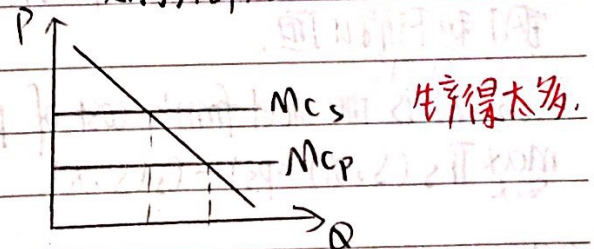 P
MCs 生产得太多.
MCp
Q